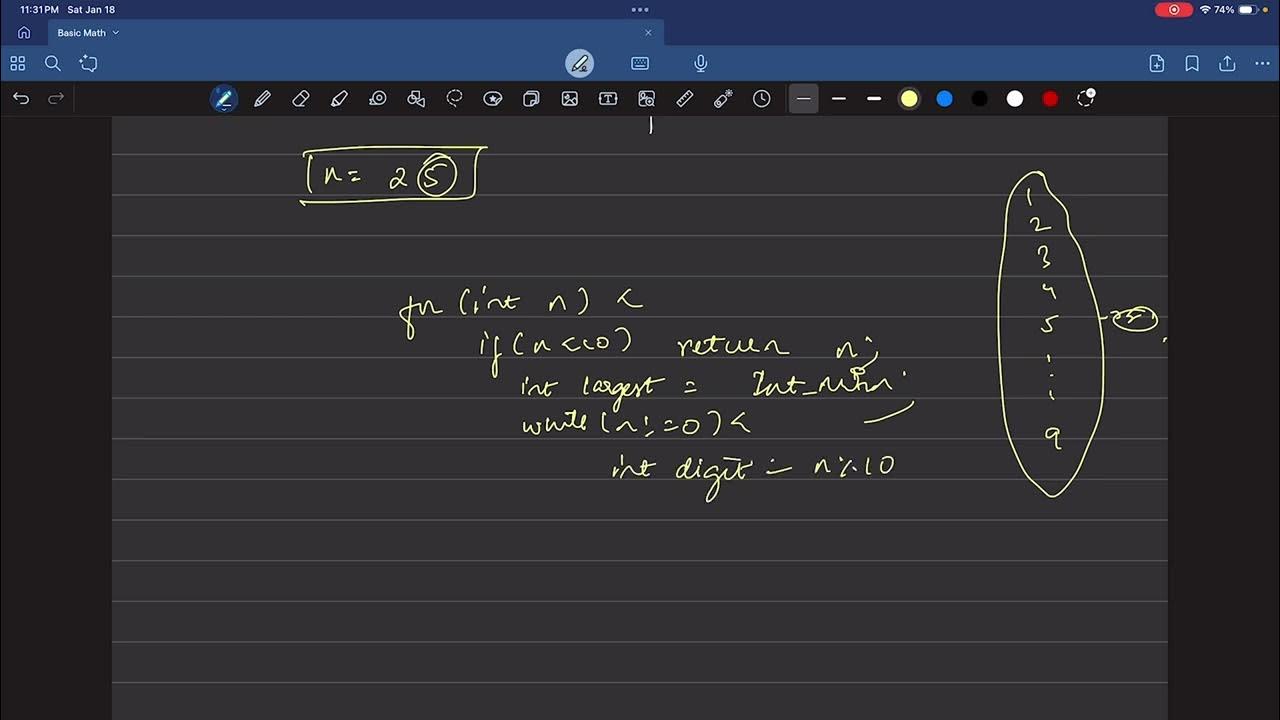 11:31 PM Sat Jan 18
74%
Basic Math
n = 25
fn (int n) <
if (n <10) return n;
int largest = Int_Min;
while (n != 0) <
int digit = n%10
1
2
3
4
5
9